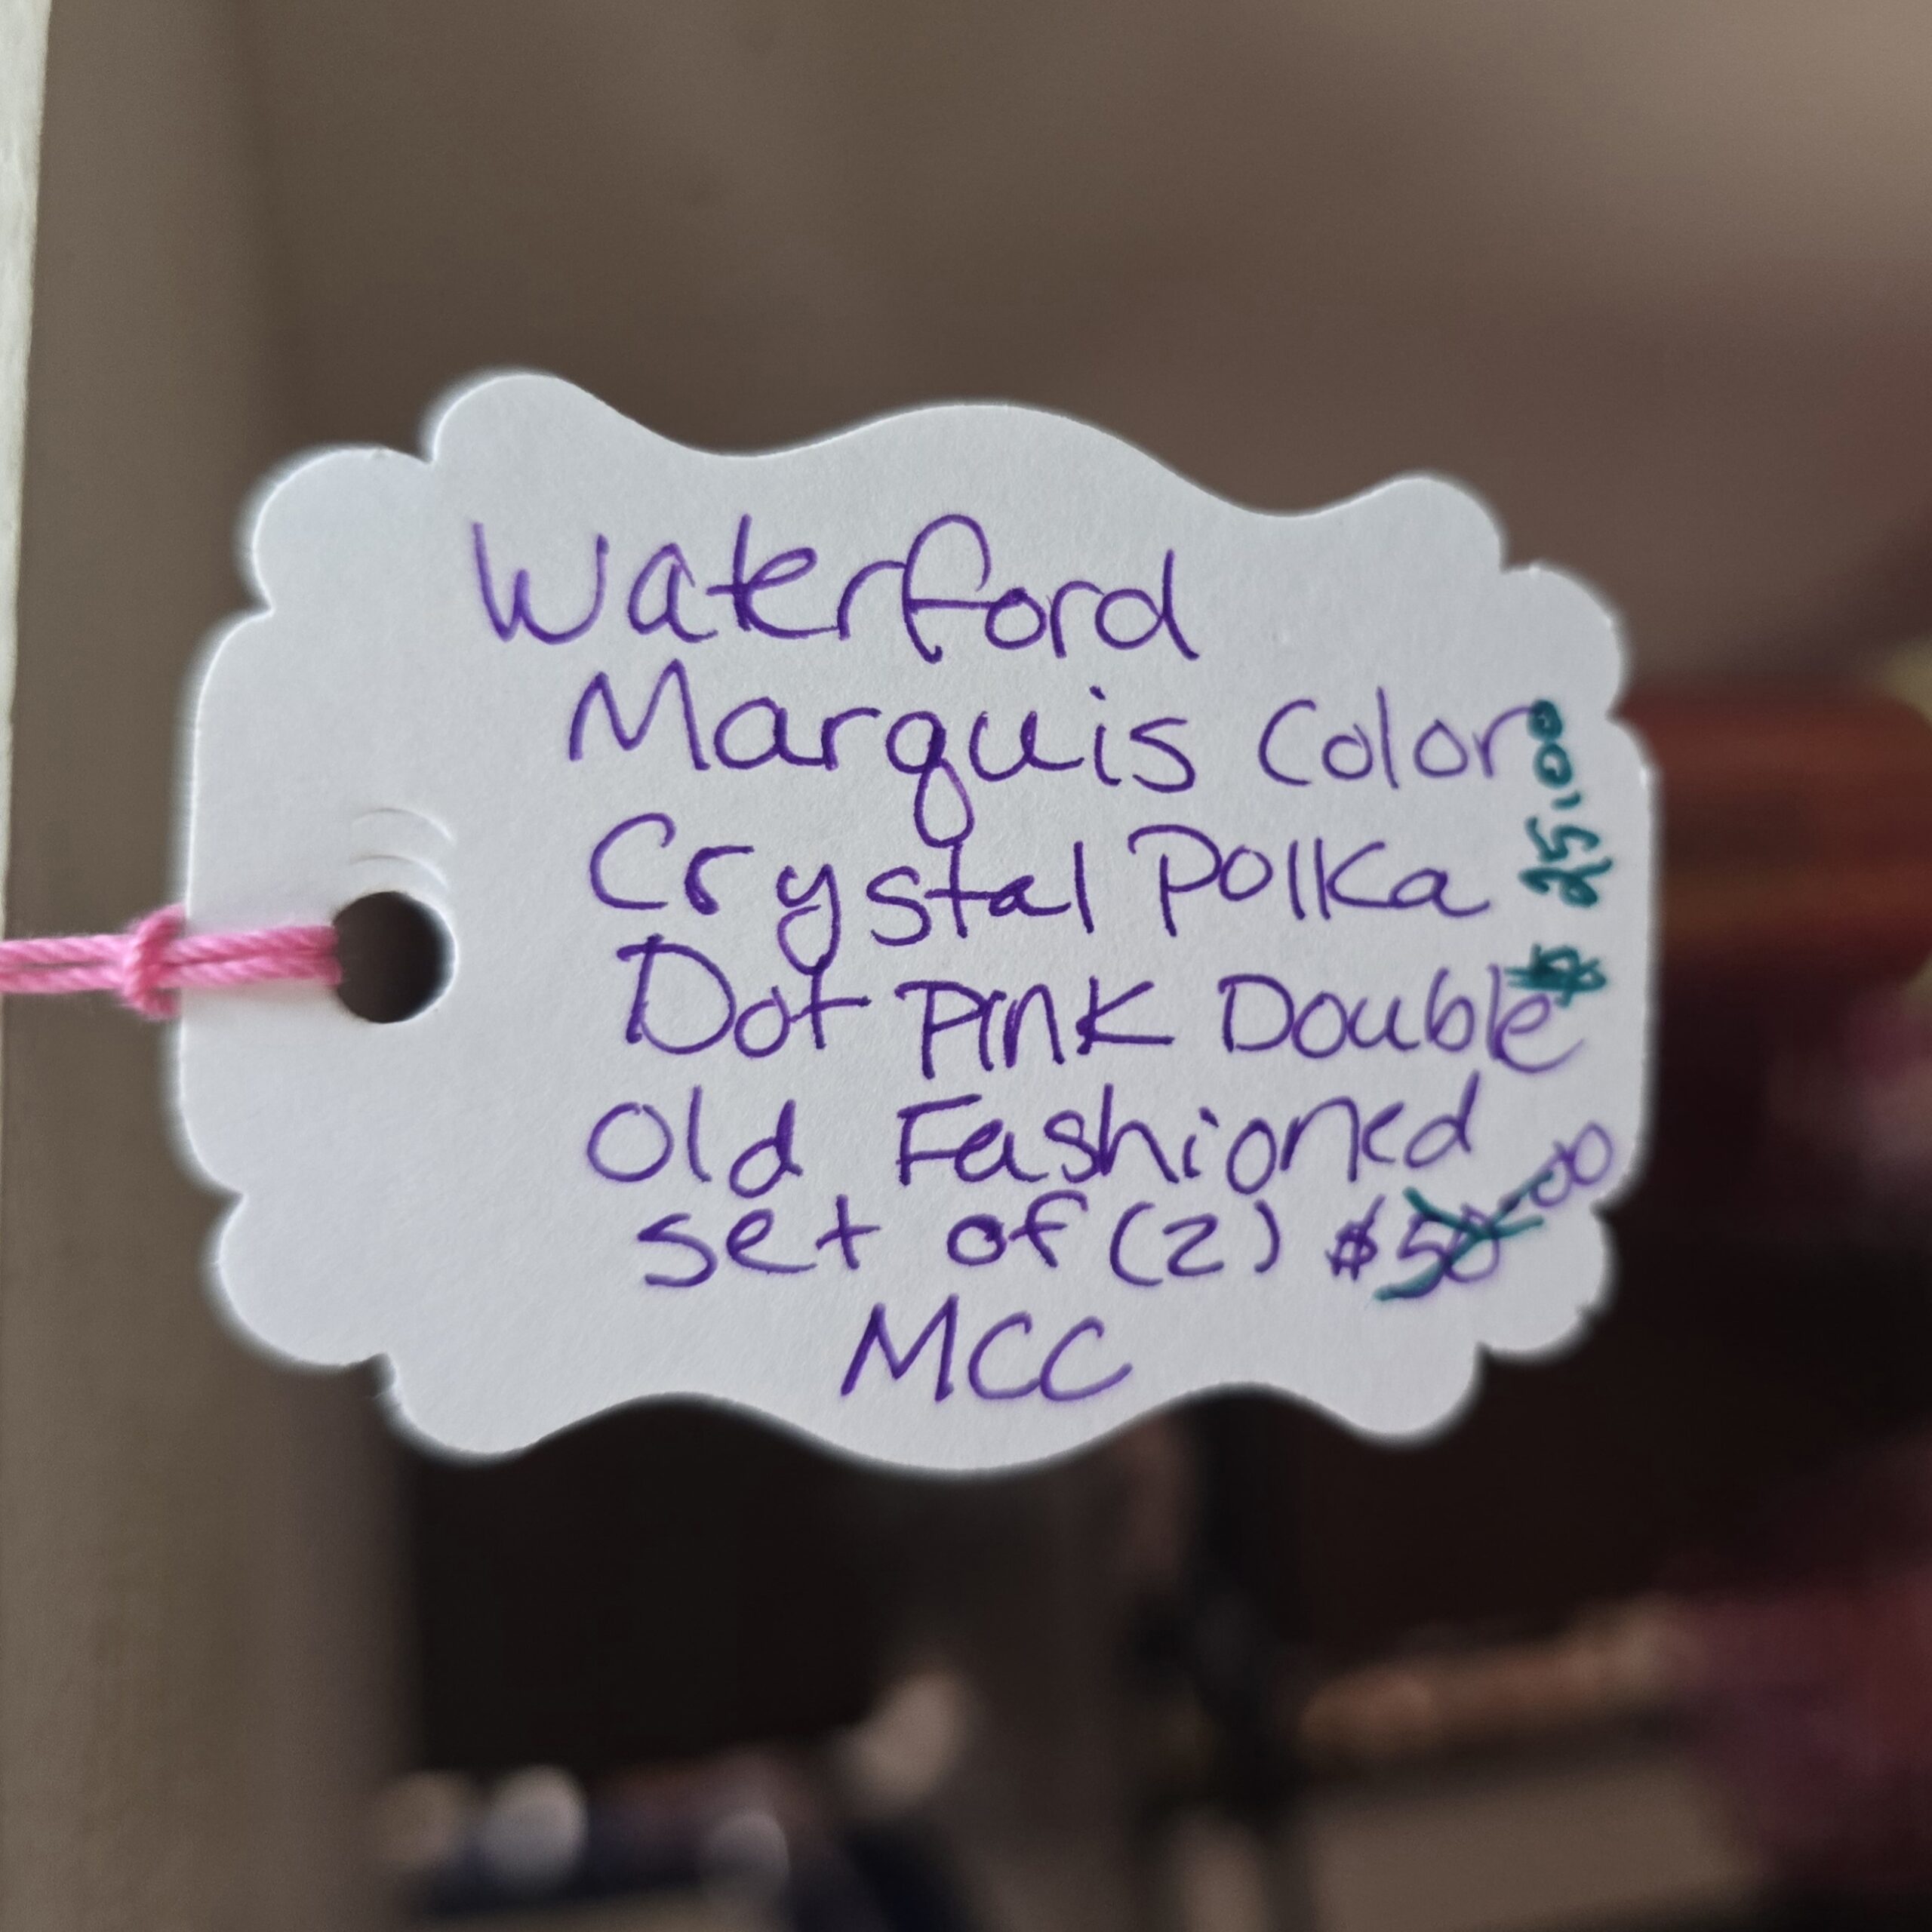 Waterford
Marquis Color
Crystal Polka
Dot Pink Double
Old Fashioned
set of (2) $50.00
MCC
$25.00